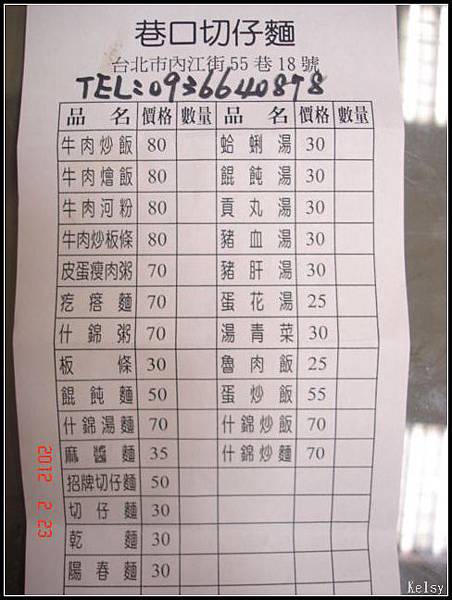 巷口切仔麵
台北市內江街55巷18號
TEL:0936640878
品名 價格 數量 品名 價格 數量
牛肉炒飯 80 蛤蜊湯 30
牛肉燴飯 80 餛飩湯 30
牛肉河粉 80 貢丸湯 30
牛肉炒板條 80 豬血湯 30
皮蛋瘦肉粥 70 豬肝湯 30
疙瘩麵 70 蛋花湯 25
什錦粥 70 湯青菜 30
板條 30 魯肉飯 25
餛飩麵 50 蛋炒飯 55
什錦湯麵 70 什錦炒飯 70
麻醬麵 35 什錦炒麵 70
招牌切仔麵 50
切仔麵 30
乾麵 30
陽春麵 30
2012 2 23
Kelsy